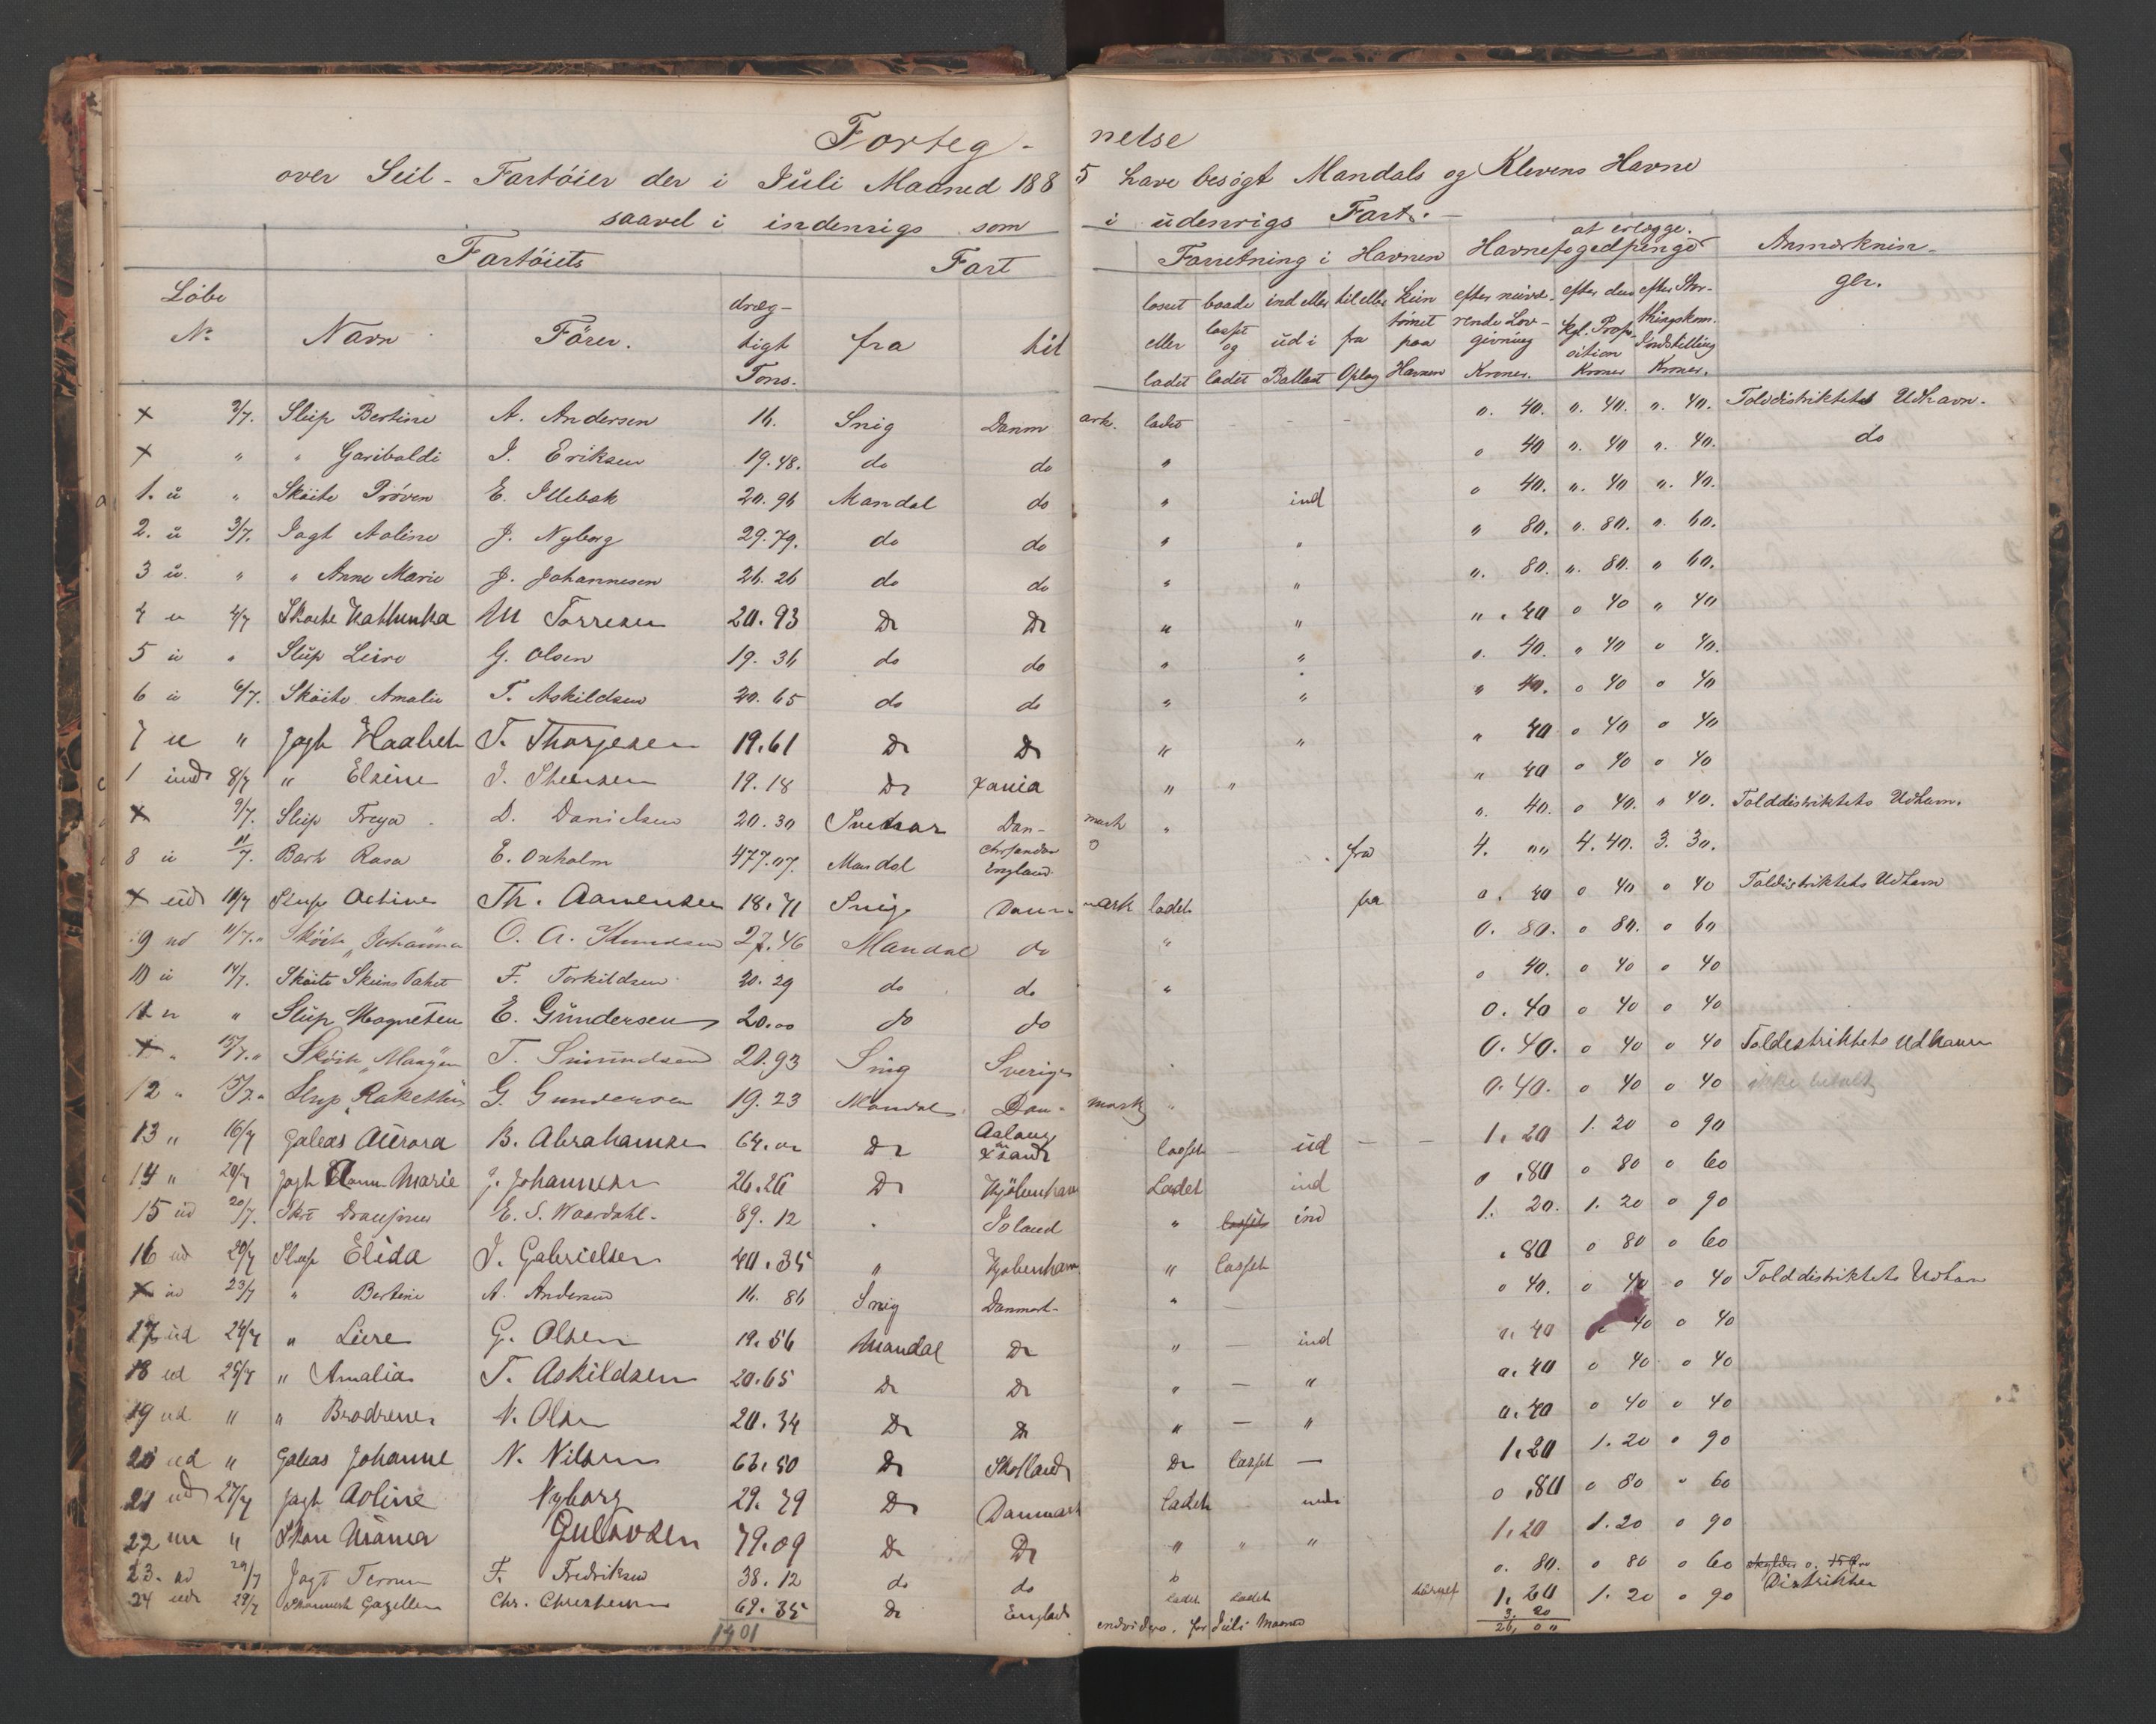 Forteg- nelse
over Seil-Fartöier der i Juli Maaned 188 5 have besögt Mandals og Klevens Havne
saavel i indenrigs som i udenrigs Fart.
Fartöiets Fart Forretning i Havnen Havnefogedpenge at erlægge. Anmærknin-
ger.
Löbe
No Navn Förer. dræg-
tigt
Tons. fra til losset
eller
ladet baade
losset
og
ladet ind eller
ud i
Ballast til eller
fra
Oplag Havnen efter nuvæ-
rende Lov-
givning
Kroner. efter den
Kgl. Prop-
osition
Kroner efter Stor-
thingskom.
Indstilling
Kroner.
+ 2/7. Slup Bertine A. Andersen 16. Snig Danm ark. ladet - - - 0. 40. 0. 40. 0. 40. Tolddistriktets Udhavn.
+ " " Garibaldi J. Eriksen 19.48. do do " 0 40 0. 40 0. 40. do
1. u " Sköite Pröven E. Illebak 20.96 Mandal do " ind 0 40. 0. 40 0. 40.
2. u 3/7. Jagt Aoline J. Nyborg 29.79. do do " " " 80. 0. 80. 0. 60.
3 u. " " Anne Marie J. Johannesen 26.26 do do " " 0. 80. 0. 80. 0 60.
4 u 4/7 Skoite Kathinka M Torresen 20.93 Do Do " " ". 40 0 40 0 40
5 u " Slup Leire G. Olsen 19.36 do do " " 0. 40. 0 40 0 40.
6 u 6/7. Sköite Amalie T. Askildsen 20.65 do do " " " 40. 0 40 0 40
7 u " Jagt Haabet T. Thorjesen 19.61 Do Do " " " 40 0 40 0 40
1 ind 8/7 " Elsine J. Steensen 19.18 Do Xania " " " 40 0 40 0 40
+ 9/7. Slup Freya D. Danielsen 20.30 Dan- mark " 0. 40. 0 40. 0 40. Tolddistriktets Udhavn.
8 u 7. Bark Rosa E. Oxholm 477.07. Mandal England 0 fra 4. "" 4.40. 3.30.
+ ud 10/7 Slup Active Th. Aanensen 18.71 Snig Danm ark ladet fra 0. 40 0 40 0 40 Toldistriktets Udhavn
9 ud 11/7 Sköite Johanna O. A. Knudsen 27.46 Mandal do " 0. 80. 0 80. 0 60
10 u 14/7. Sköite Skiens Paket F. Torkildsen 20.29 do do " 0 40. 0 40 0 40
11 u " Slup Magneten E. Gundersen 20.00 do do 0. 40 0 40 0 40
+ " 15/7 Sköite T. Simundsen 20.93 Snig Sverige 0. 40. 0 40 0 40 Toldistriktets Udhavn
12 " 15/7 Slup Raketten G. Gundersen 19.23 Mandal Dan- mark " 0. 40. 0 40 0 40 ikke betalt
13 " 16/7 Galeas Aurora B. Abrahamsen 64.00 Do losset - ud - - 1. 20 1. 20 0 90
14 " 20/7 Jagt Anne Marie J. Johannesen 26.26 Do Kjöbenhavn Ladet ind 0 .80 0 80 0 60
15 ud 20/7. E. S. Waardahl. 89.12 " Island " losset ind 1. 20. 1. 20 0 90
16 ud 20/7 Slup Elida J. Gabrielsen 40.35 " Kjobenhavn " losset . 80 0 80 0 60
+ ud 23/7 " Bertine A. Andersen 16. 86 Snig Danmark- " - 0 40. 0 40 0 40 Tolddistriktets Udhavn
17 ud 24/7 " Liere G. Olsen 19.56 Mandal Do " - ind 0. 40 0 40 0 40
18 ud 25/7 " Amalia T. Askildsen 20.65 Do Do " - " 0. 40 0 40 0 40
19 ud " " Brodrene N. Olsen 20.34 Do Do " - " 0. 40 0 40 0 40
20 ud " Galeas Johanne N. Nilsen 63.50 Do Skotland Do losset - 1.20 1.20 0 90
21 ud 27/7 Jagt Aoline Nyborg 29.79 Do Danmark ladet ind 0 .80 0 80 0 60
22 " Urania Gulovsen 79.09 Do Do " " " 1.20 1.20 0 90
23. ud 29/7 Jagt Ternen F. Fredriksen 38.12 do do " 0. 80. 0 80 0 60
24 ud 29/7 Gazellen Chr. Christensen 69.35 Do England ladet ladet 1.20 1.20 0 90 Distrikter
1401 endvidere. for Juli Maaned 3. 20
26, 00